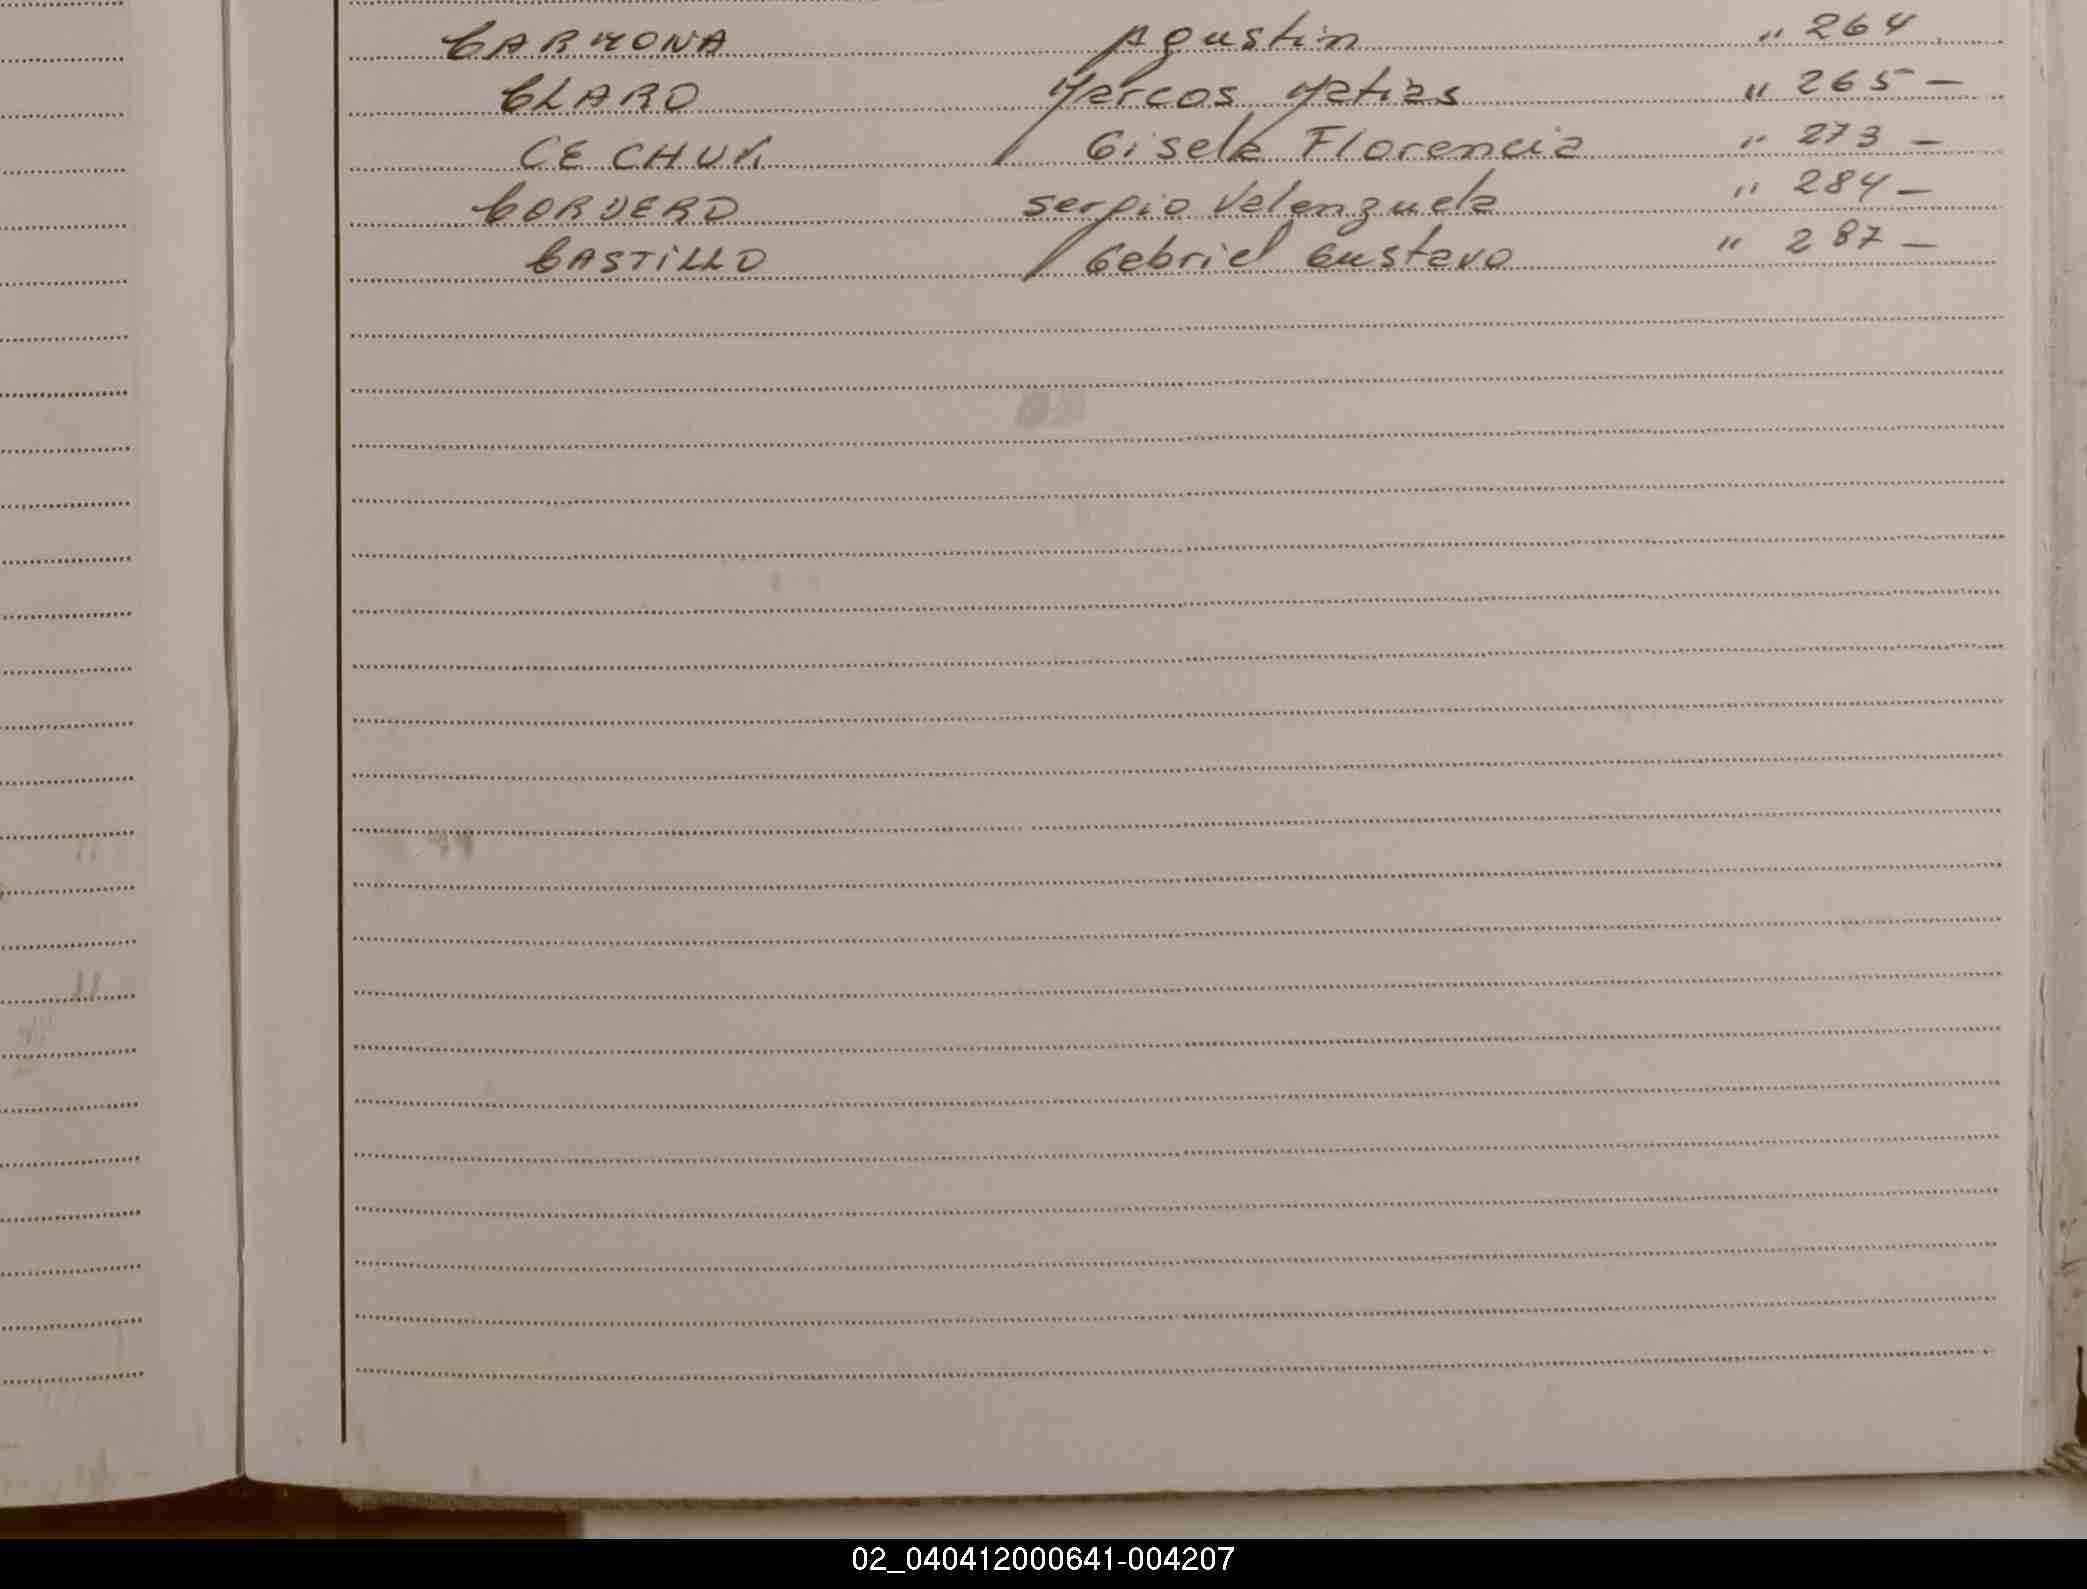 CARMONA Agustin " 264
CLARO Marcos Matias " 265 -
CECHUK Gisela Florencia " 273 -
CORDERO Sergio Valenzuela " 284 -
CASTILLO Gabriel Gustavo " 287 -
02_040412000641-004207